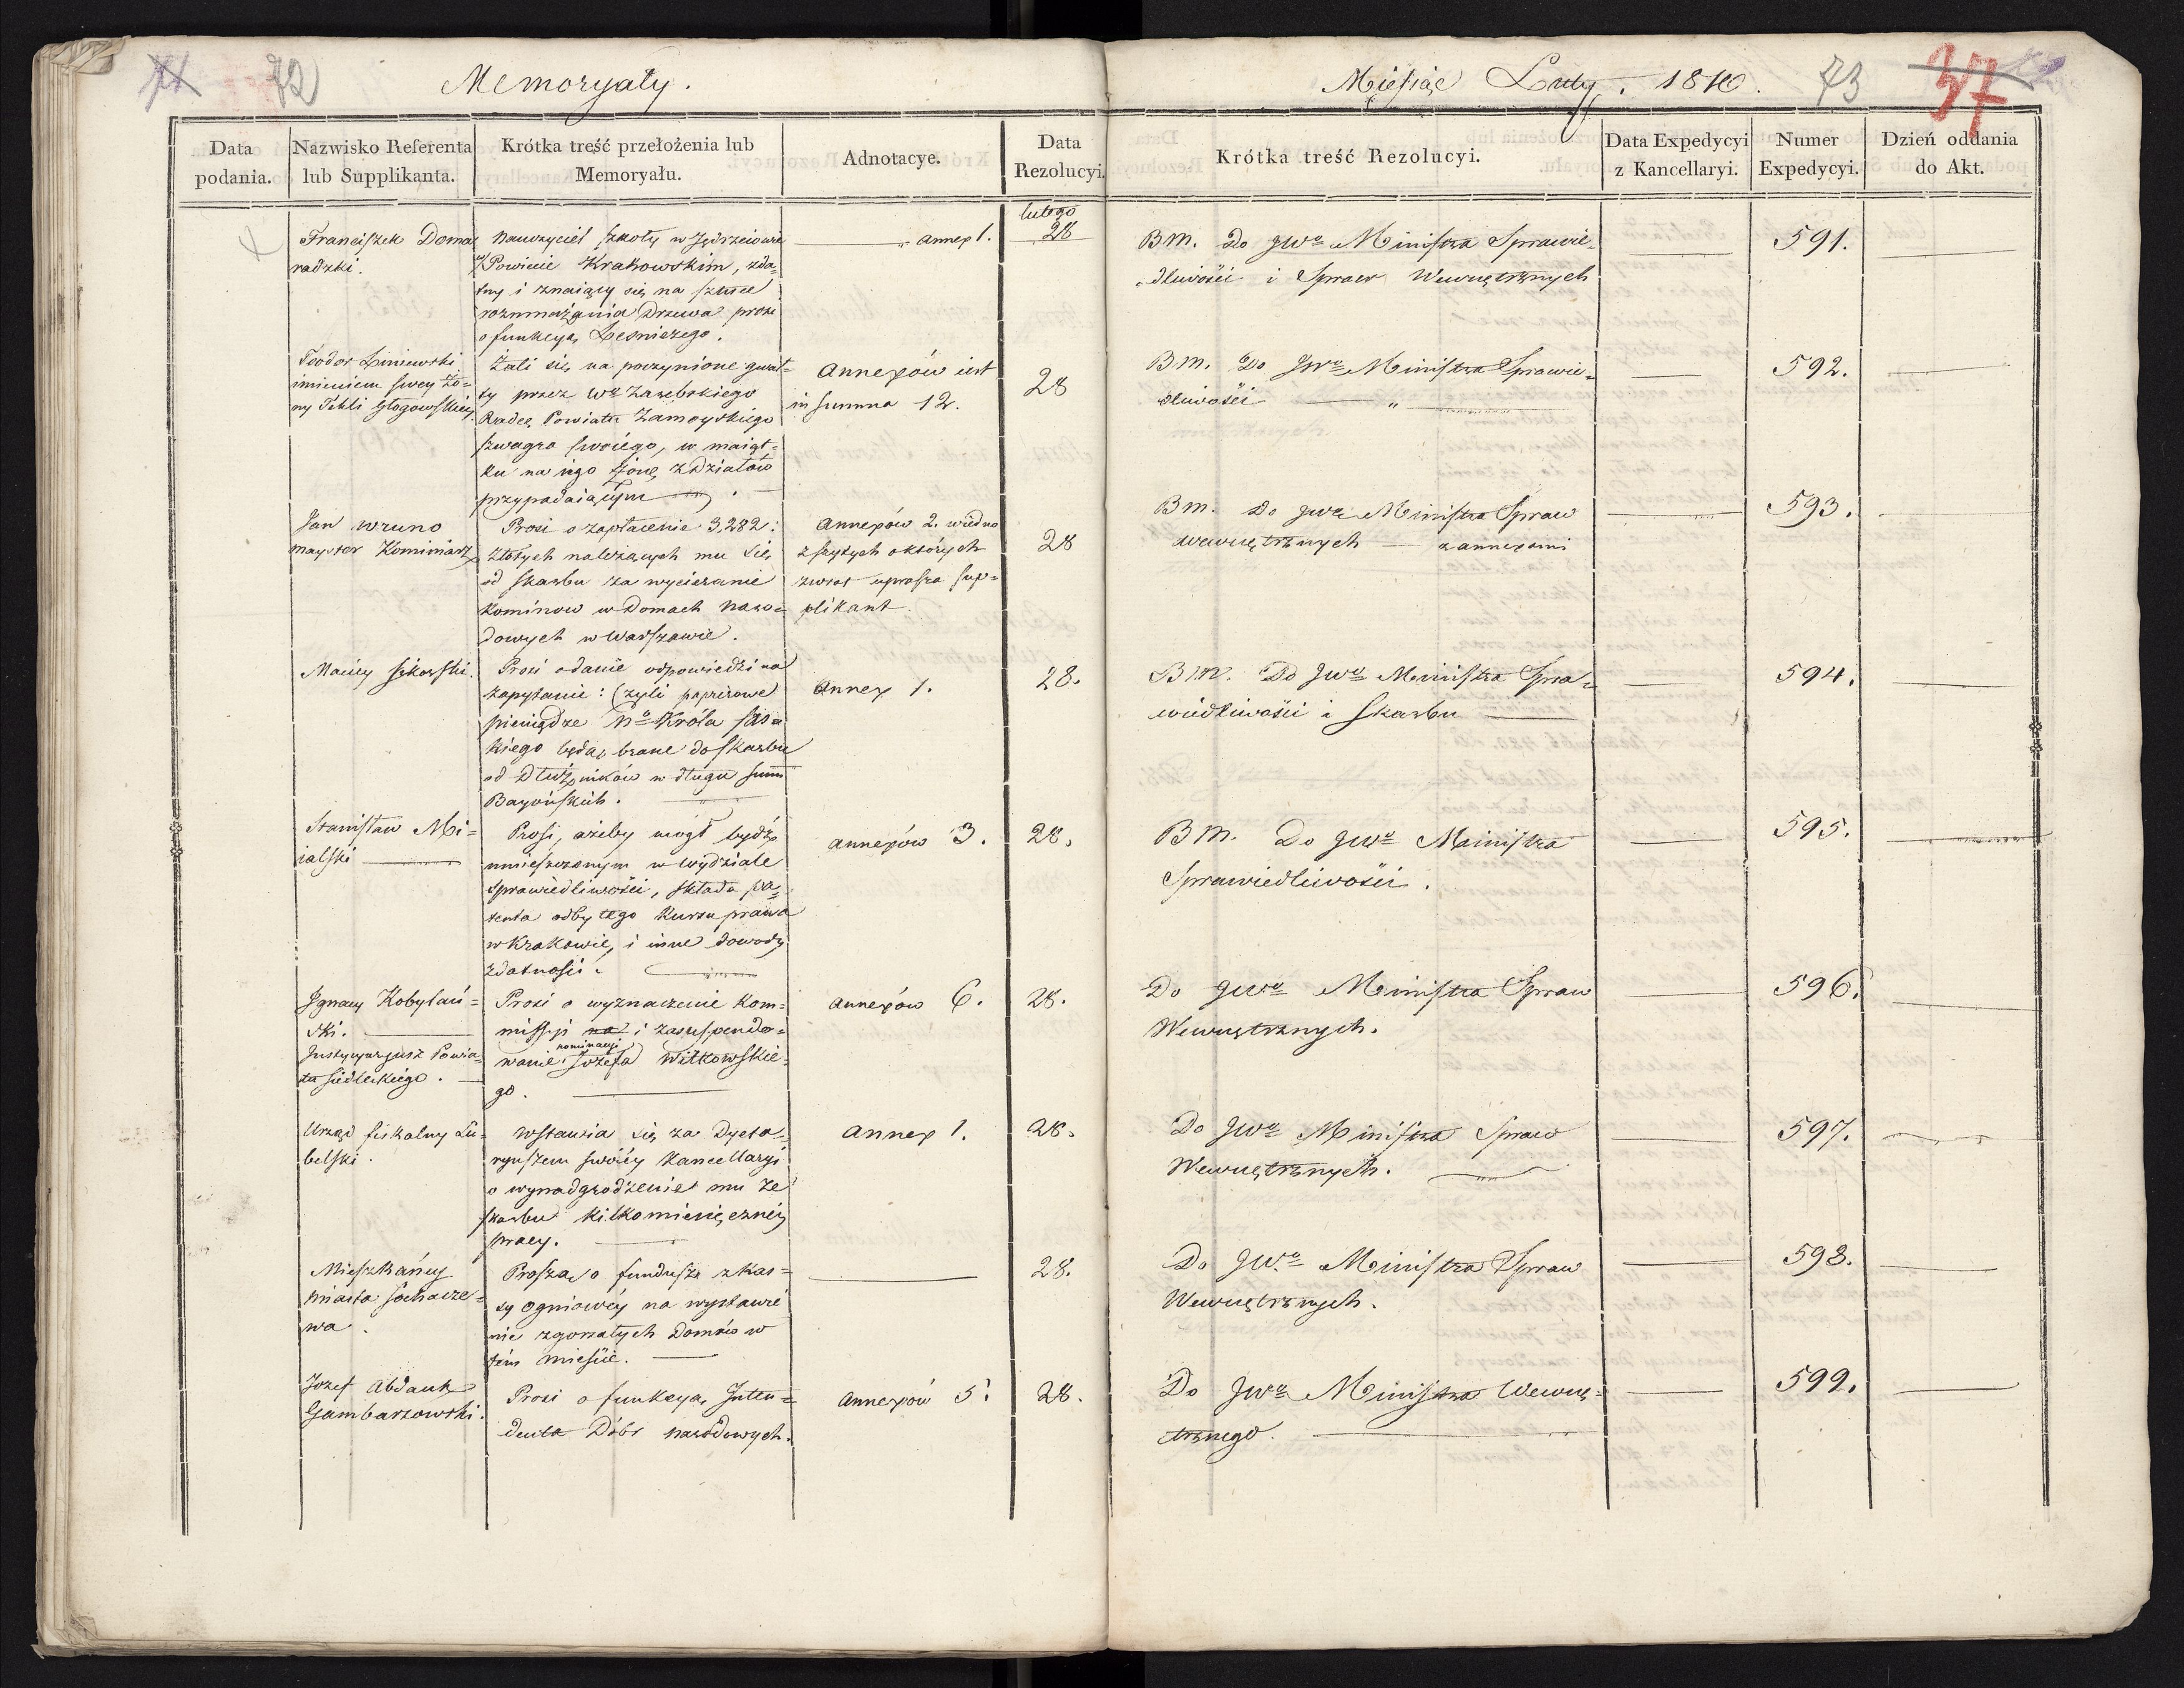 72
Memoryały.
Miesiąc Luty. 1810.
73
37
Data podania.
Nazwisko Referenta lub Supplikanta.
Krótka treść przełożenia lub Memoryału.
Adnotacye.
Data Rezolucyi.
Krótka treść Rezolucyi.
Data Expedycyi z Kancellaryi.
Numer Expedycyi.
Dzień oddania do Akt.
Franciszek Doma
radzki.
Nauczyciel szkoły w Jędrzeiowie
w Powiecie Krakowskim, zda=
tny i znaiący się na sztuce
rozmnażania Drzewa prosi
o funkcyą Leśniczego.
annex 1.
lutego
28
BM. Do JWo Ministra Sprawie=
dliwości i Spraw Wewnętrznych
591.
Teodor Liniewski
imieniem swey żo=
ny Tekli Głogowskiey
Żali się na poczynione gwał=
ty przez Wo Zarębskiego
Radcę Powiatu Zamoyskiego
szwagra swoiego, w maiąt=
ku na iego żonę z działów
przypadaiącym
Annexów iest
in summa 12.
28
BM. Do JWo Ministra Sprawie=
dliwości
592.
Jan Wruno
mayster Kominiarz
Prosi o zapłacenie 3,282:
złotych należących mu się
od skarbu za wycieranie
kominow w Domach naro=
dowych w Warszawie.
Annexów 2. wiedno
zszytych o których
zwrot uprasza sup=
plikant.
28
BM. Do JWo Ministra Spraw
wewnętrznych z annexami
593.
Maciey Sikorski.
Prosi o danie odpowiedzi na
zapytanie: (czyli papierowe
pieniądze No Króla sas=
kiego będą brane do skarbu
od Dłużników w długu summ
Bayońskich.
Annex 1.
28.
BM. Do JWo Ministra Spra=
wiedliwości i Skarbu
594.
Stanisław Mi=
ialski
Prosi, ażeby mógł bydź
umieszczonym w wydziale
Sprawiedliwości, składa pa=
tenta odbytego kursu prawa
w Krakowie, i inne dowody
zdatności.
annexów 3.
28.
BM. Do JWo Ministra
Sprawiedliwości.
595.
Ignacy Kobylań=
ski.
Instygarjusz Powia=
tu Siedleckiego.
Prosi o wyznaczenie kom=
missyi na i zasuspendo=
nominacyi
wanie Jozefa Witkowskie=
go.
annexów 6.
28.
Do JWo Ministra Spraw
Wewnętrznych.
596.
Urząd fiskalny Lu=
belski.
Wstawia się za Dyeta=
ryuszem swoiey Kancellaryi
o wynadgrodzenie mu ze
skarbu kilkomiesięczney
pracy.
Annex 1.
28.
Do JWo Ministra Spraw
Wewnętrznych.
597.
Mieszkańcy
miasta Sochacze=
wa.
Proszą o fundusz z kas=
sy ogniowey na wystawie
nie zgorzałych domów w
tem mieście.
28.
Do JWo Ministra Spraw
Wewnętrznych.
598.
Jozef Abdank
Gambarzowski.
Prosi o funkcyą Inten=
denta Dóbr narodowych.
Annexów 5.
28.
Do JWo Ministra Wewnę=
trznego.
599.